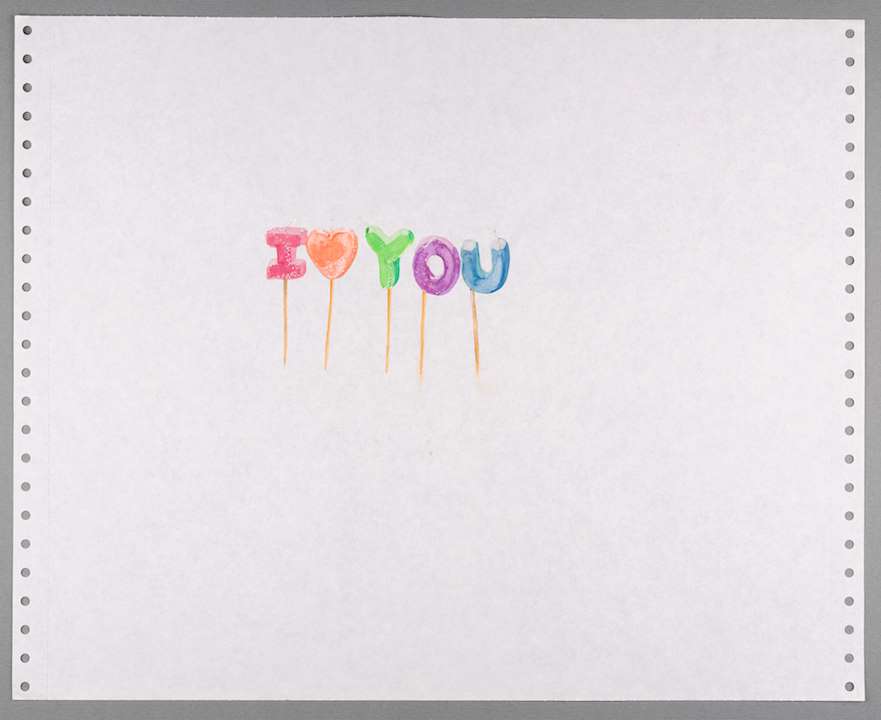 I ♥ YOU